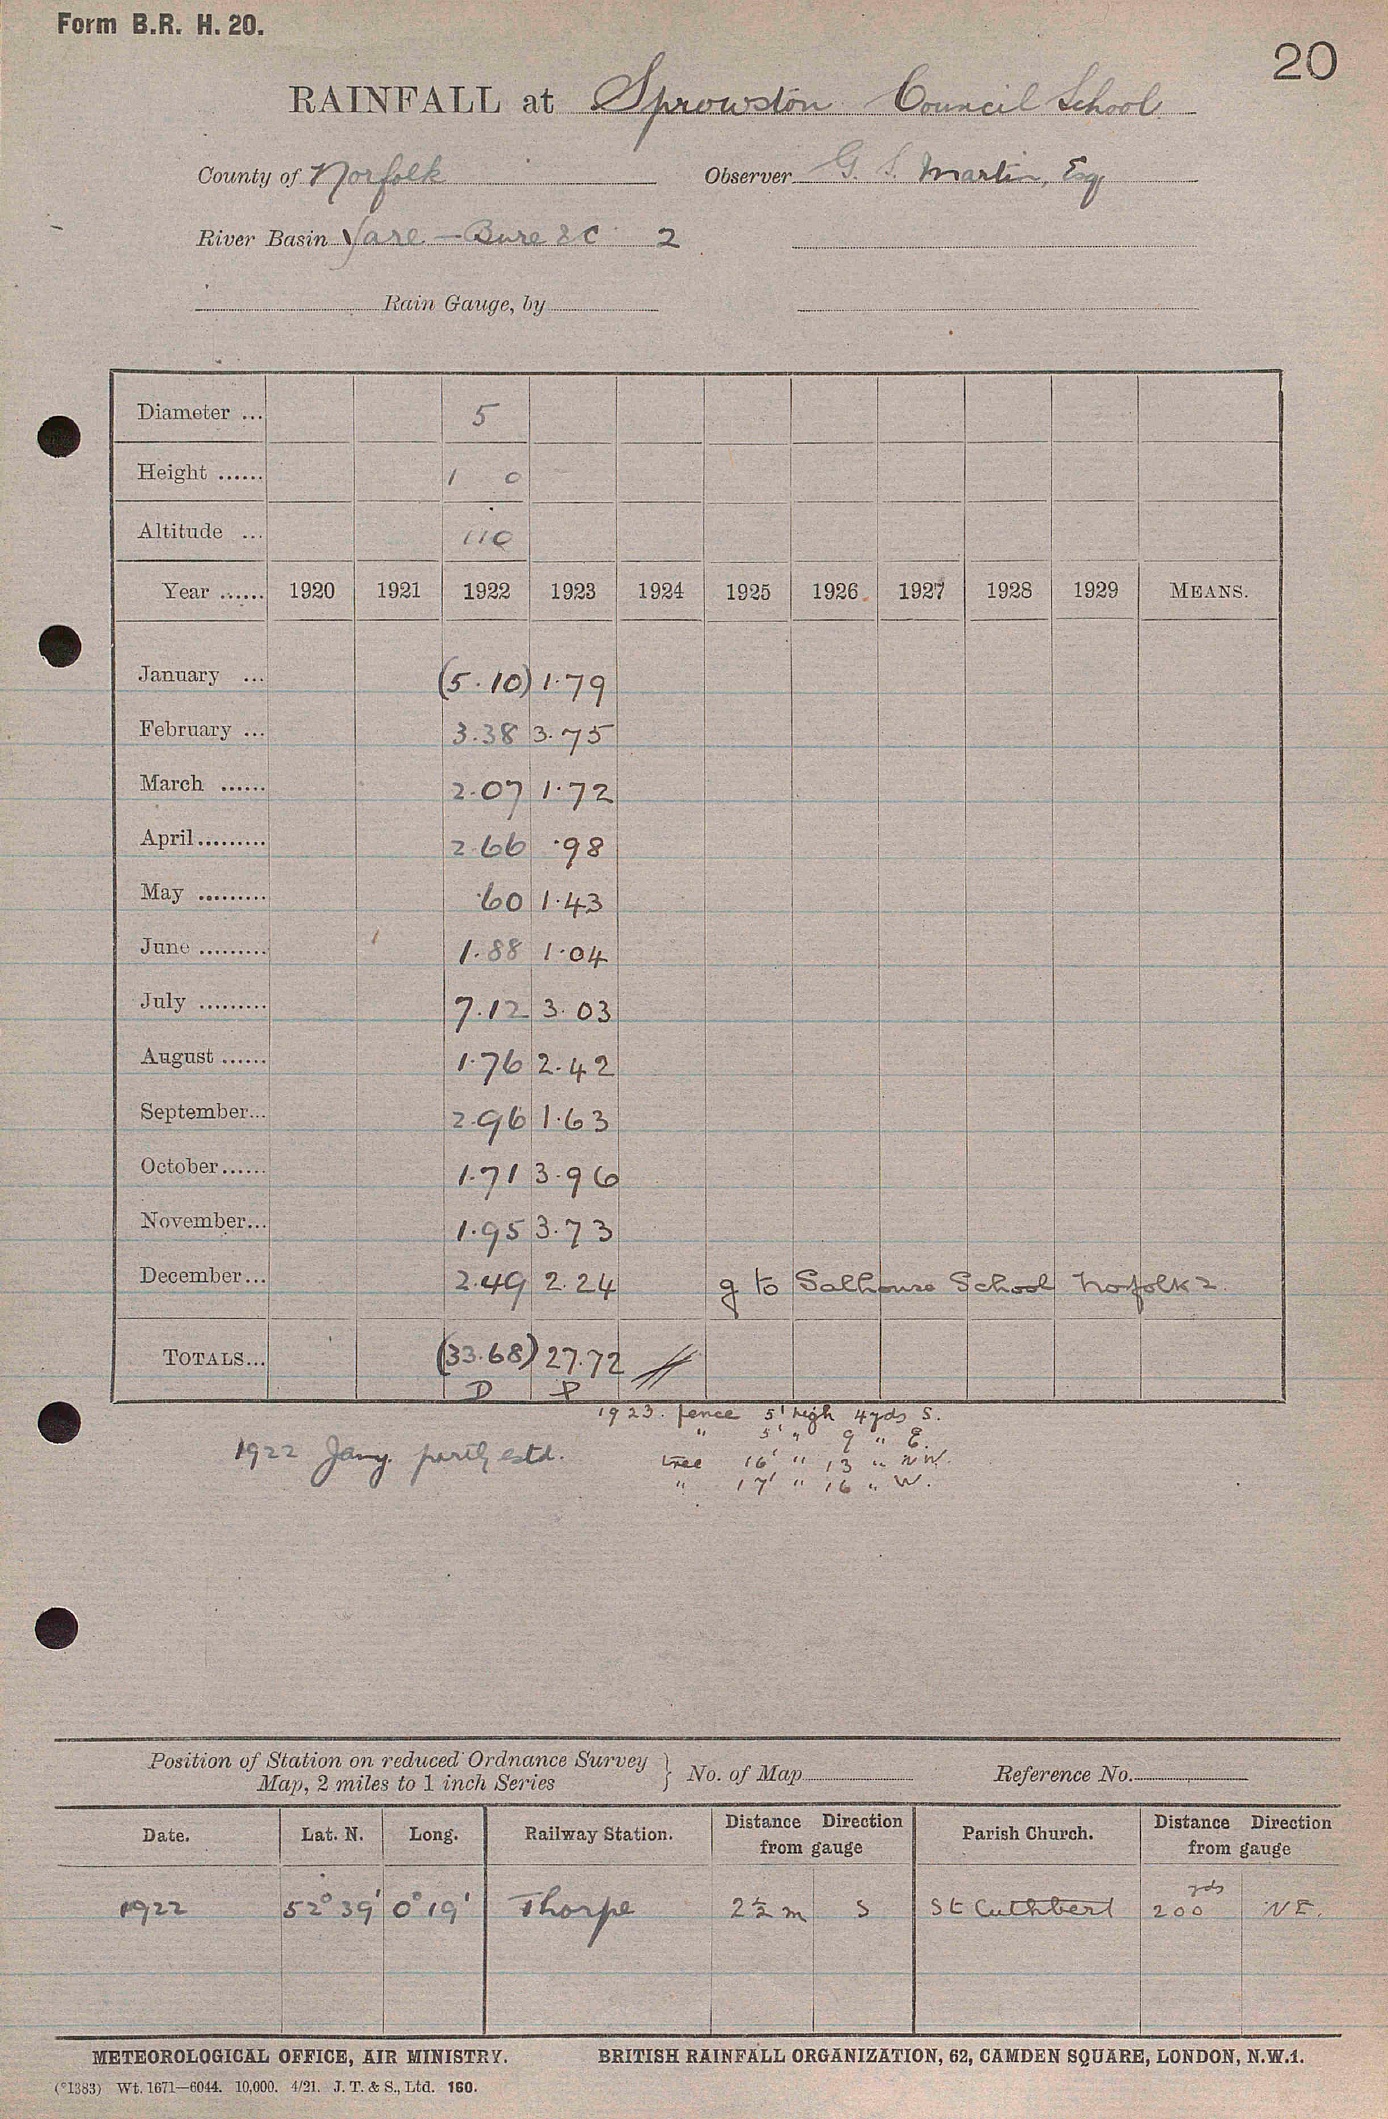 Form B.R. H. 20.
20
RAINFALL at Sprowston Council School
County of Norfolk Observer G. S. Martin, Esq
River Basin Yare — Bure &c 2
Rain Gauge, by
Diameter ... 5
Height ...... 1 0
Altitude ... 110
Year ...... 1920 1921 1922 1923 1924 1925 1926 1927 1928 1929 MEANS.
January ... (5.10) 1.79
February ... 3.38 3.75
March ...... 2.07 1.72
April ......... 2.66 .98
May ......... .60 1.43
June ......... 1.88 1.04
July ......... 7.12 3.03
August ...... 1.76 2.42
September... 2.96 1.63
October...... 1.71 3.96
November... 1.95 3.73
December... 2.49 2.24 g to Salhouse School Norfolk 2.
TOTALS... (33.68) 27.72
D P
1923. fence 5' high 4 yds S.
" 5' " 9 " E.
1922 Jany. partly estd.
tree 16' " 13 " NW.
" 17' " 16 " W.
Position of Station on reduced Ordnance Survey Map, 2 miles to 1 inch Series } No. of Map Reference No.
Date. Lat. N. Long. Railway Station. Distance from gauge Direction Parish Church. Distance from gauge Direction
1922 52° 39' 0° 19' Thorpe 2½ m S St Cuthbert 200 yds NE.
METEOROLOGICAL OFFICE, AIR MINISTRY. BRITISH RAINFALL ORGANIZATION, 62, CAMDEN SQUARE, LONDON, N.W.1.
(*1383) Wt. 1671—6044. 10,000. 4/21. J. T. & S., Ltd. 160.